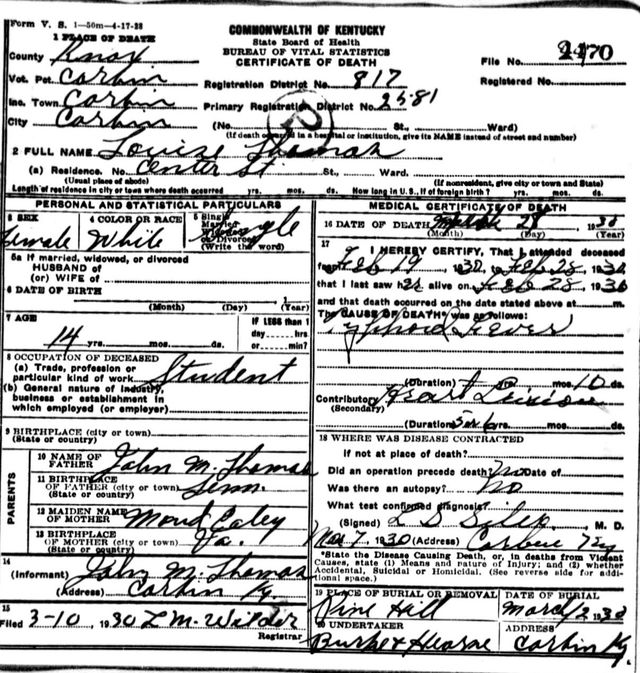 Form V. S. 1—50m—4-17-28
COMMONWEALTH OF KENTUCKY
State Board of Health
BUREAU OF VITAL STATISTICS
CERTIFICATE OF DEATH
1 PLACE OF DEATH
County Knox
File No. 2470
Vot. Pct. Corbin
Registration District No. 817
Registered No.
Inc. Town Corbin
Primary Registration District No. 2581
City Corbin (No. St., Ward)
(If death occurred in a hospital or institution, give its NAME instead of street and number)
2 FULL NAME Louise Thomas
(a) Residence. No. Center St St., Ward.
(Usual place of abode) (If nonresident, give city or town and State)
Length of residence in city or town where death occurred yrs. mos. ds. How long in U. S., if of foreign birth? yrs. mos. ds.
PERSONAL AND STATISTICAL PARTICULARS
3 SEX 4 COLOR OR RACE 5 Single Married Widowed or Divorced (Write the word)
Female White Single
5a If married, widowed, or divorced
HUSBAND of
(or) WIFE of
6 DATE OF BIRTH
(Month) (Day) (Year)
7 AGE IF LESS than 1
14 yrs. mos. ds. day hrs. or min?
8 OCCUPATION OF DECEASED
(a) Trade, profession or
particular kind of work Student
(b) General nature of industry,
business or establishment in
which employed (or employer)
9 BIRTHPLACE (city or town)
(State or country)
PARENTS
10 NAME OF
FATHER John M. Thomas
11 BIRTHPLACE
OF FATHER (city or town) Tenn.
(State or country)
12 MAIDEN NAME
OF MOTHER Maud Ealey
13 BIRTHPLACE
OF MOTHER (city or town) Va.
(State or country)
14
(Informant) John M. Thomas
(Address) Corbin Ky.
15
Filed 3-10, 1930 L. M. Wilder
Registrar
MEDICAL CERTIFICATE OF DEATH
16 DATE OF DEATH 28 1930
(Month) (Day) (Year)
17 I HEREBY CERTIFY, That I attended deceased
from Feb 19 1930 to Feb 28, 1930
that I last saw alive on Feb 28, 1930
and that death occurred on the date stated above at m.
The CAUSE OF DEATH was as follows:
Typhoid Fever
(Duration) yrs. mos. 10 ds.
Contributory Heart
(Secondary)
(Duration) yrs. mos. ds.
18 WHERE WAS DISEASE CONTRACTED
If not at place of death?
Did an operation precede death? No Date of
Was there an autopsy? No
What test confirmed diagnosis?
(Signed) M. D.
Mar 7, 1930 (Address) Corbin Ky
*State the Disease Causing Death, or, in deaths from Violent
Causes, state (1) Means and nature of Injury; and (2) whether
Accidental, Suicidal or Homicidal. (See reverse side for addi-
tional space.)
19 PLACE OF BURIAL OR REMOVAL DATE OF BURIAL
Pine Hill March 2 1930
20 UNDERTAKER ADDRESS
Burke & Hearne Corbin Ky.